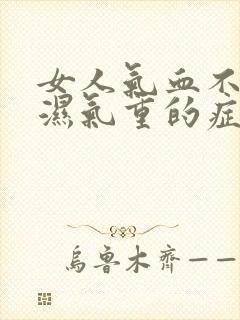 女人氣血不
濕氣重的症
烏魯木齊——